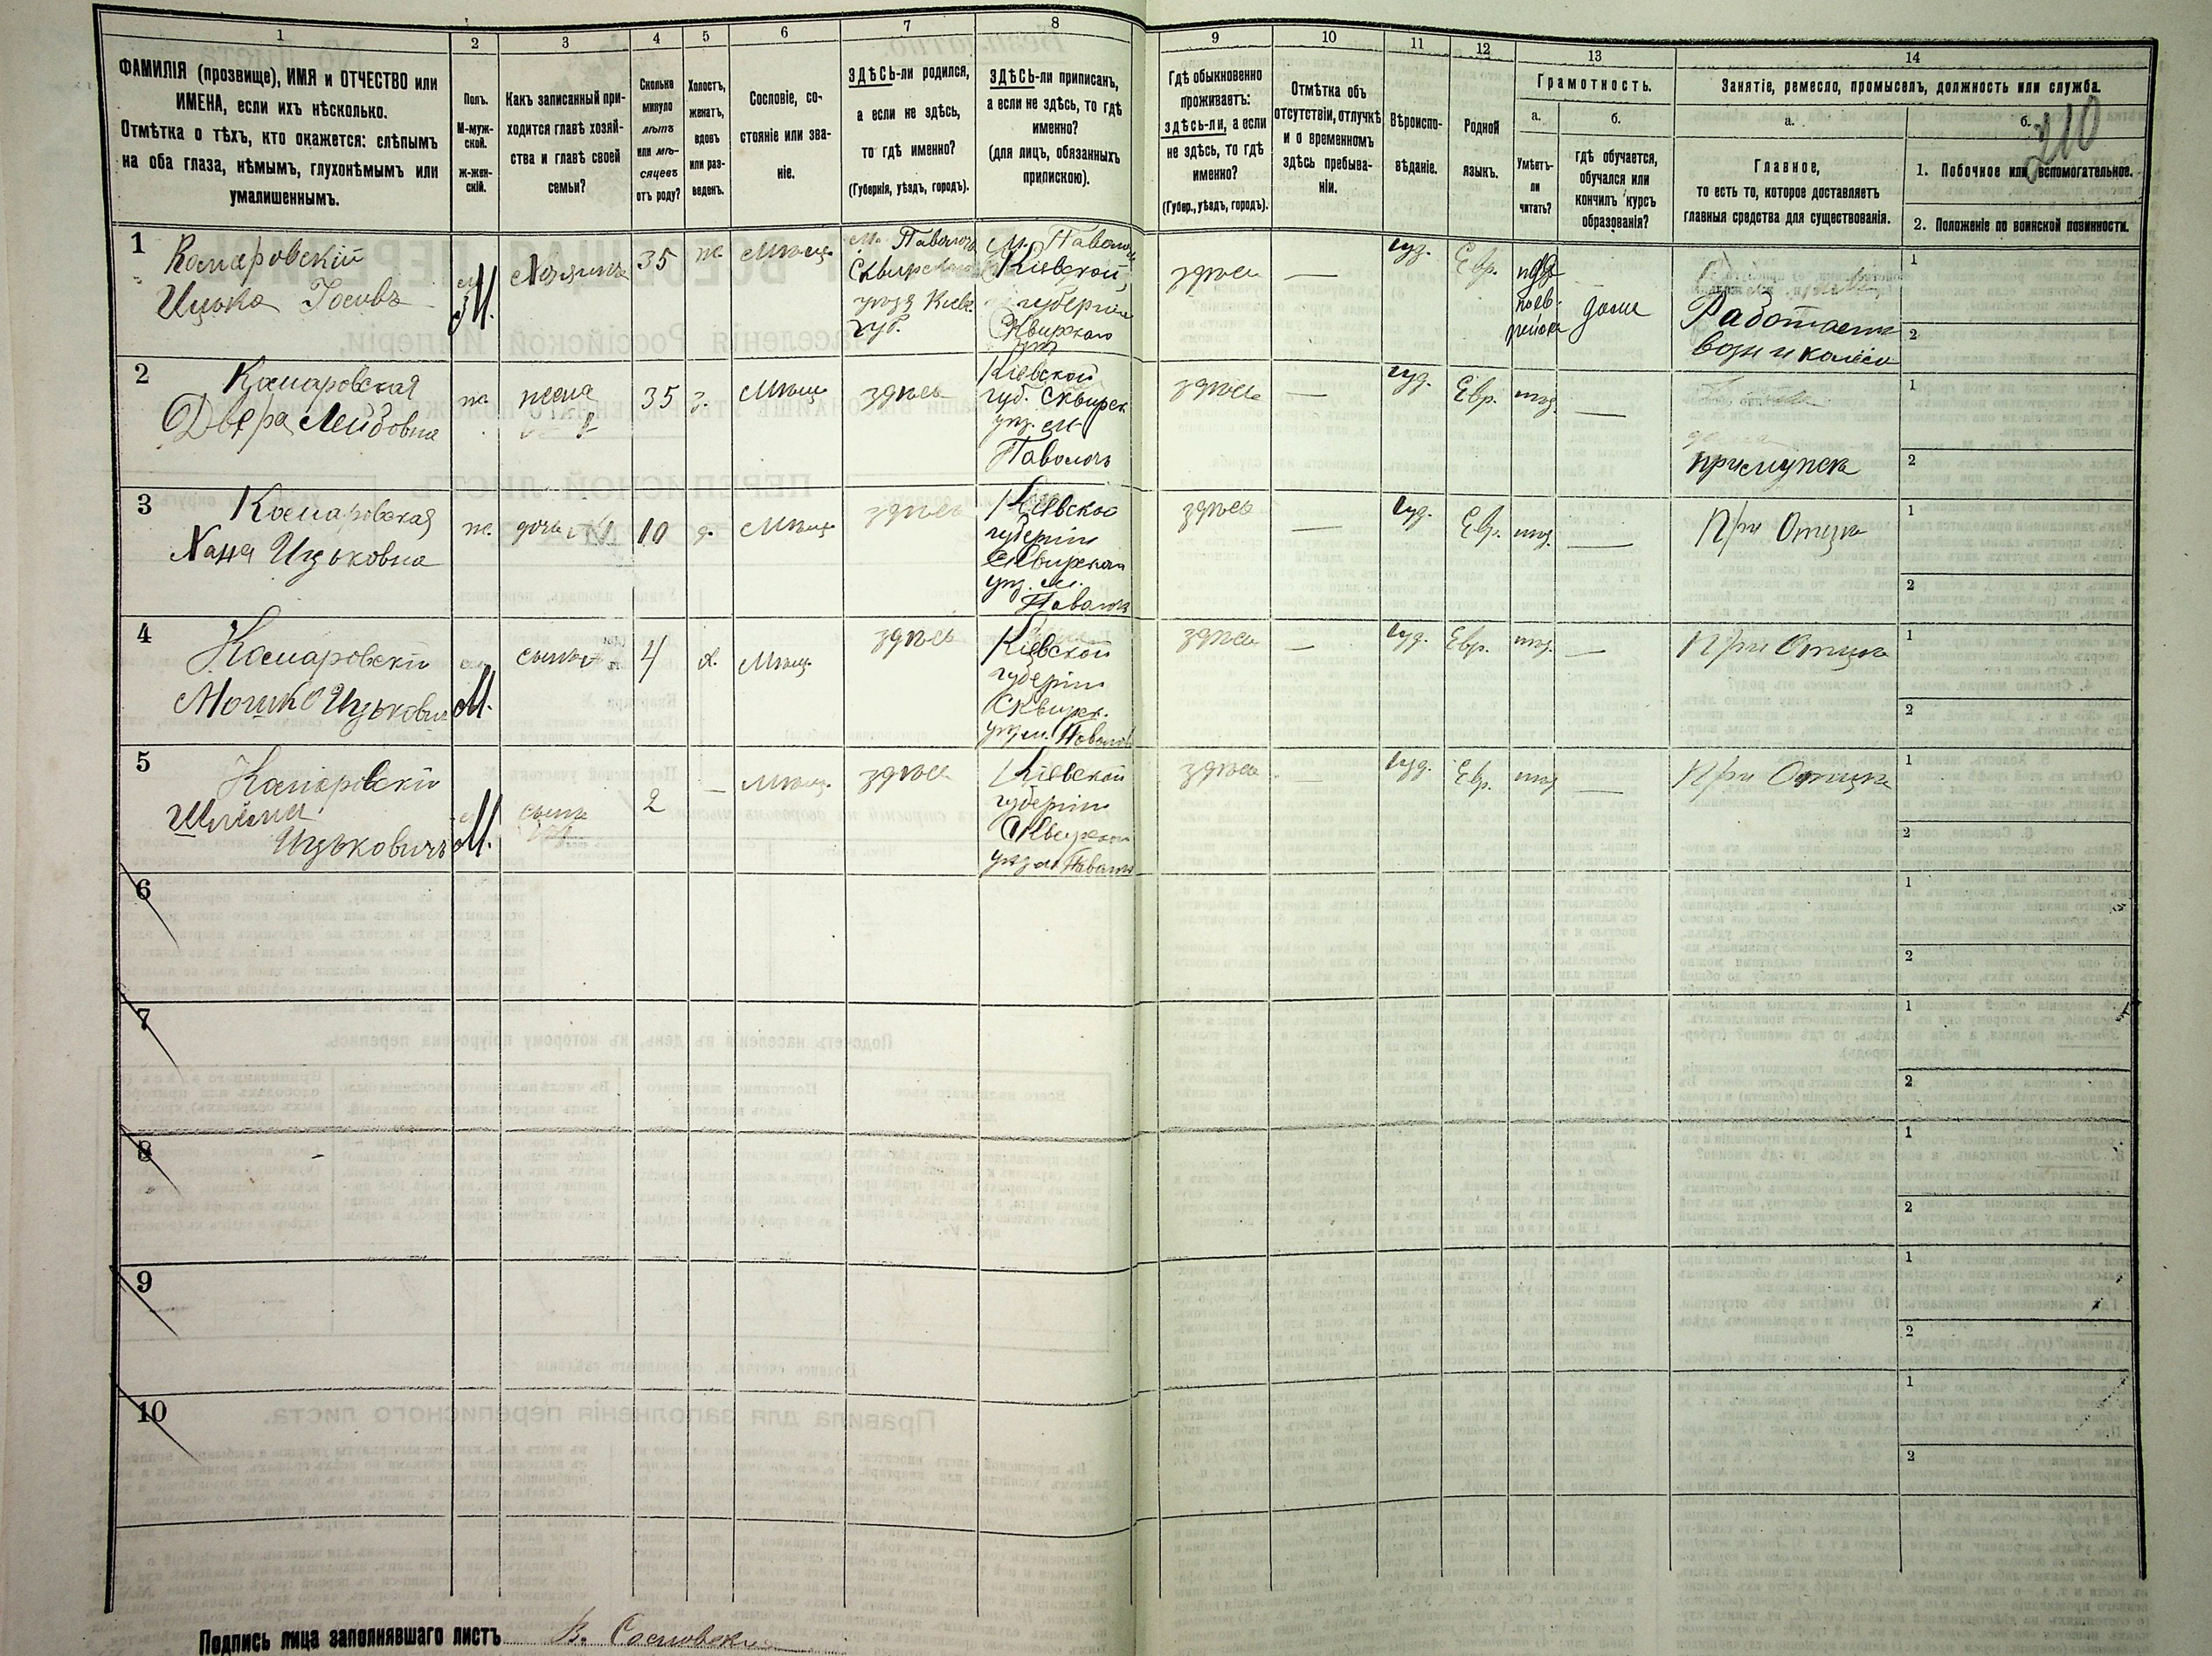 1
2
3
4
5
6
7
8
9
10
11
12
13
14
ФАМИЛІЯ (прозвище), ИМЯ и ОТЧЕСТВО или
ИМЕНА, если ихъ нѣсколько.
Отмѣтка о тѣхъ, кто окажется: слѣпымъ
на оба глаза, нѣмымъ, глухонѣмымъ или
умалишеннымъ.
Полъ.
М-муж-
ской.
ж-жен-
скій.
Какъ записанный при-
ходится главѣ хозяй-
ства и главѣ своей
семьи?
Сколько
минуло
лѣтъ
или мѣ-
сяцевъ
отъ роду?
Холостъ,
женатъ,
вдовъ
или раз-
веденъ.
Сословіе, со-
стояніе или зва-
ніе.
ЗДѢСЬ-ли родился,
а если не здѣсь,
то гдѣ именно?
(Губернія, уѣздъ, городъ).
ЗДѢСЬ-ли приписанъ,
а если не здѣсь, то гдѣ
именно?
(для лицъ, обязанныхъ
припискою).
Гдѣ обыкновенно
проживаетъ:
здѣсь-ли, а если
не здѣсь, то гдѣ
именно?
(Губер., уѣздъ, городъ).
Отмѣтка объ
отсутствіи, отлучкѣ
и о временномъ
здѣсь пребыва-
ніи.
Вѣроиспо-
вѣданіе.
Родной
языкъ.
Грамотность.
а.
Умѣетъ-
ли
читать?
б.
гдѣ обучается,
обучался или
кончилъ курсъ
образованія?
Занятіе, ремесло, промыселъ, должность или служба.
а.
Главное,
то есть то, которое доставляетъ
главныя средства для существованія.
б.
210
1. Побочное или вспомогательное.
2. Положеніе по воинской повинности.
1
Комаровскій
Ицько Іосивъ
М.
Хозяинъ
35
ж.
мѣщ.
м. Паволочь
Сквирского
уѣзд Кіев.
губ.
м. Паволочь
Кіевской
губерніи
Сквирского
здѣсь
—
Іуд.
Евр.
дома
Работаетъ
1
2
2
Комаровская
Двера Лейбовна
ж.
жена
35
з.
мѣщ.
здѣсь
Кіевской
губ. Сквирск.
уѣз. м.
Паволочь
здѣсь
—
Іуд.
Евр.
—
1
2
3
Комаровская
Хана Ицьковна
ж.
дочь
10
д.
мѣщ.
здѣсь
Кіевской
губерніи
Сквирской
уѣз. м.
Паволочь
здѣсь
—
Іуд.
Евр.
—
При Отцѣ
1
2
4
Комаровскій
Мошко Ицькович
М.
сынъ
4
х.
мѣщ.
здѣсь
Кіевской
губерніи
Сквирск.
уѣз м. Паволочь
здѣсь
—
Іуд.
Евр.
—
При Отцѣ
1
2
5
Комаровскій
Шлема
Ицьковичъ
М.
сынъ
2
—
мѣщ.
здѣсь
Кіевской
губерніи
Сквирской
уѣз м Паволочь
здѣсь
—
Іуд.
Евр.
—
При Отцѣ
1
2
6
1
2
7
1
2
8
1
2
9
1
2
10
1
2
Подпись лица заполнявшаго листъ